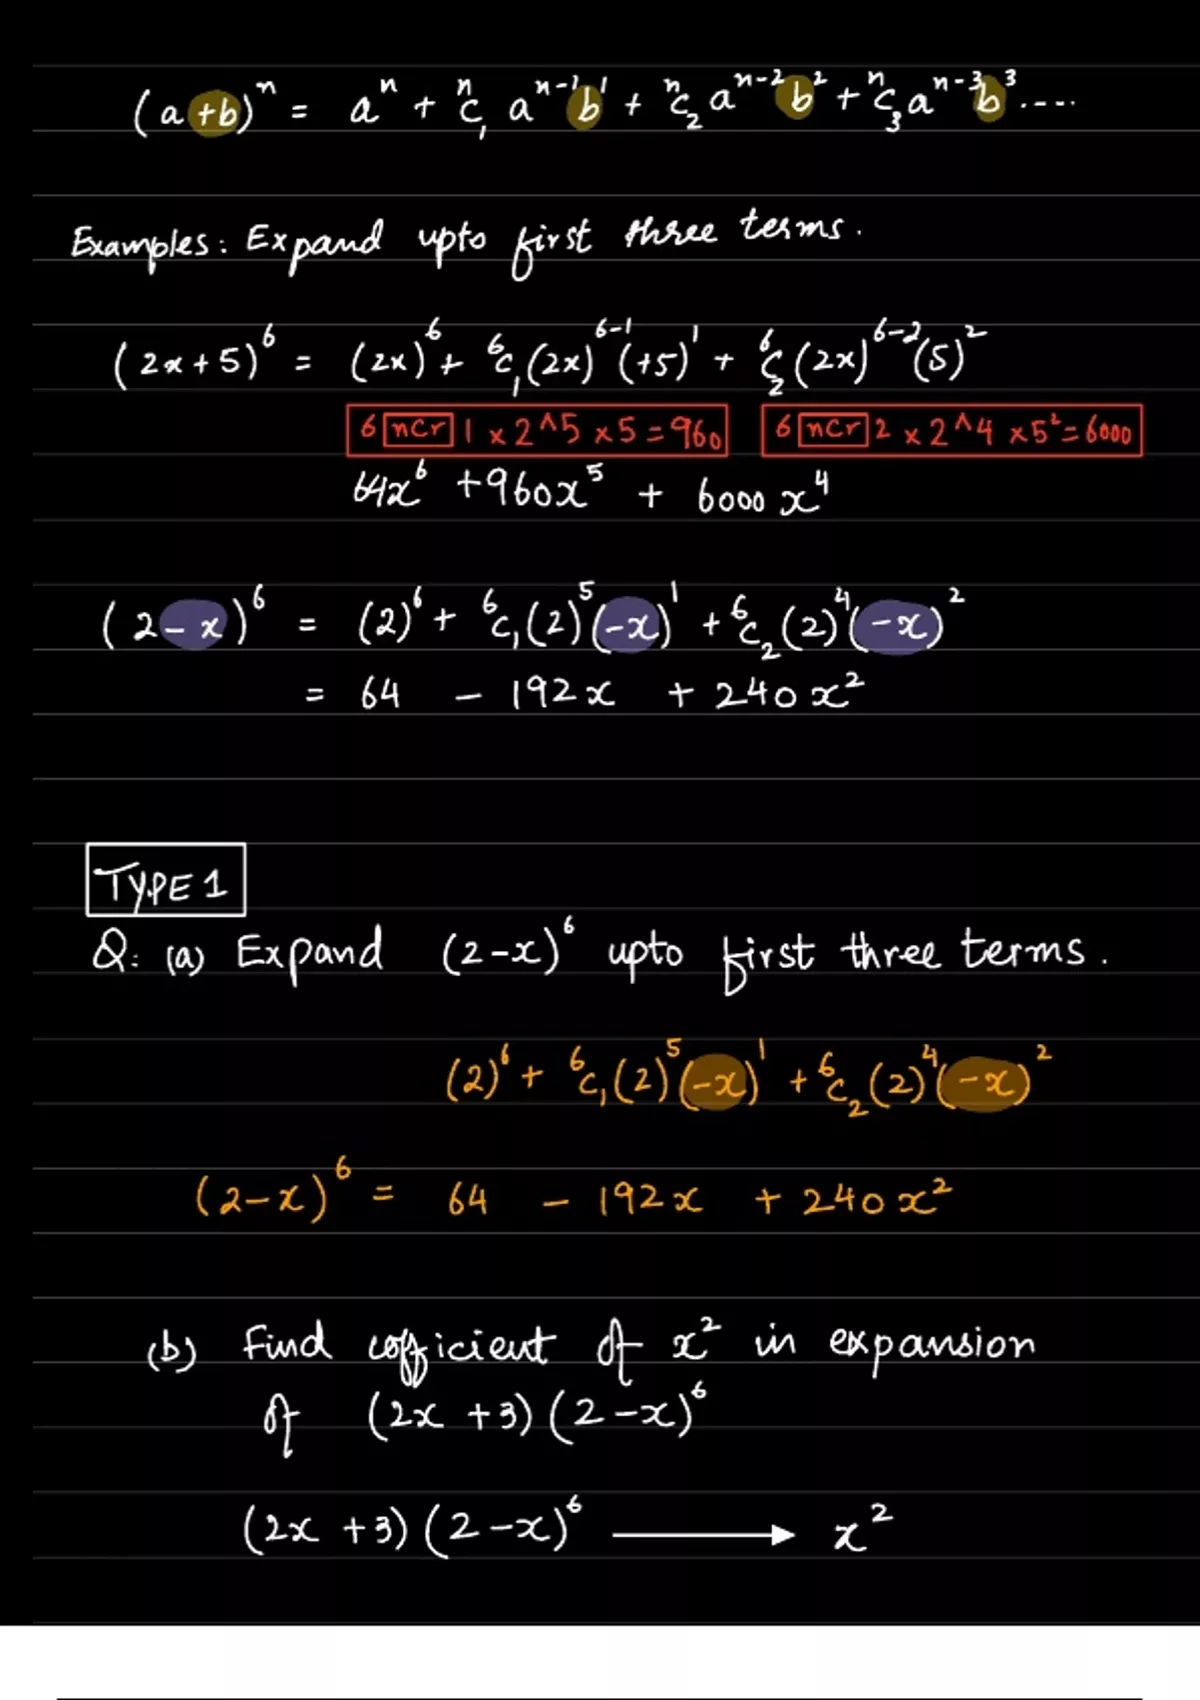 (a+b)ⁿ = aⁿ + ⁿC₁ aⁿ⁻¹b¹ + ⁿC₂ aⁿ⁻²b² + ⁿC₃ aⁿ⁻³b³ ....
Examples: Expand upto first three terms.
(2x+5)⁶ = (2x)⁶ + ⁶C₁(2x)⁶⁻¹(+5)¹ + ⁶C₂(2x)⁶⁻²(5)²
6 nCr 1 × 2^5 × 5 = 960 6 nCr 2 × 2^4 × 5² = 6000
64x⁶ + 960x⁵ + 6000x⁴
(2-x)⁶ = (2)⁶ + ⁶C₁(2)⁵(-x)¹ + ⁶C₂(2)⁴(-x)²
= 64 - 192x + 240x²
TYPE 1
Q: (a) Expand (2-x)⁶ upto first three terms.
(2)⁶ + ⁶C₁(2)⁵(-x)¹ + ⁶C₂(2)⁴(-x)²
(2-x)⁶ = 64 - 192x + 240x²
(b) Find cofficient of x² in expansion
of (2x+3)(2-x)⁶
(2x+3)(2-x)⁶ ⟶ x²